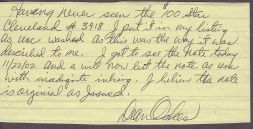 Having never seen the $100 Star
Cleveland # 3918 I put it in my listing
as unc washed as this was the way it was
described to me. I got to see the note today
11/22/02 and a will now list the note as unc
with inking. I believe the note
is original as Issued.
Dean Oakes